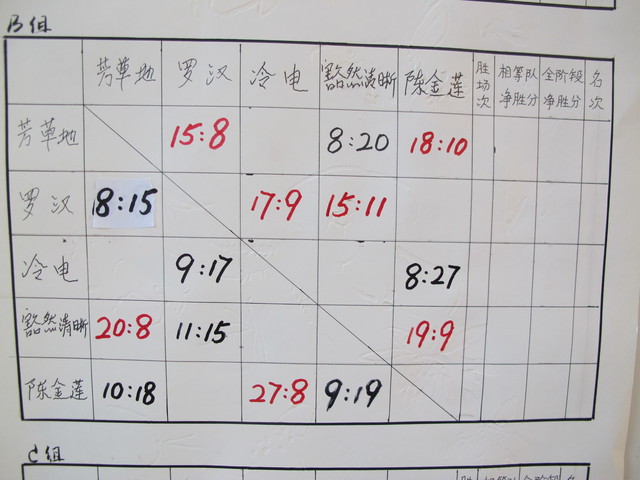 B组
芳草地 罗汉 冷电 豁然清晰 陈金莲 胜场次 相等队净胜分 全阶段净胜分 名次
芳草地 15:8 8:20 18:10
罗汉 8:15 17:9 15:11
冷电 9:17 8:27
豁然清晰 20:8 11:15 19:9
陈金莲 10:18 27:8 9:19
C组